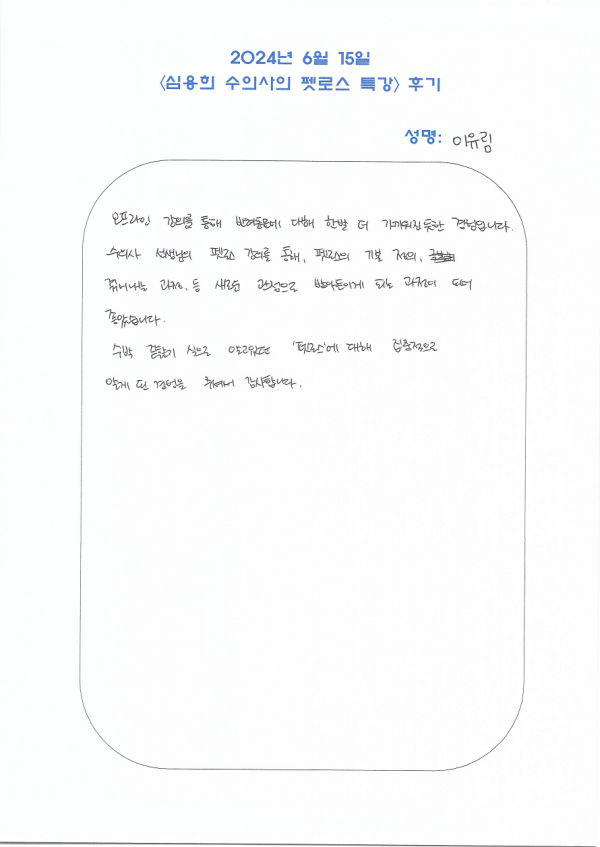 2024년 6월 15일
<심용희 수의사의 펫로스 특강> 후기
성명: 이유림
오프라인 강의를 통해 반려동물에 대해 한발 더 가까워진 듯한 경험입니다.
수의사 선생님의 펫로스 강의를 통해, 펫로스의 기본 정의,
과정, 등 새로운 관점으로 받아들이게 되는 과정이 되어
좋았습니다.
수박 겉핥기 식으로 알고있던 '펫로스'에 대해 집중적으로
알게 된 감사합니다.